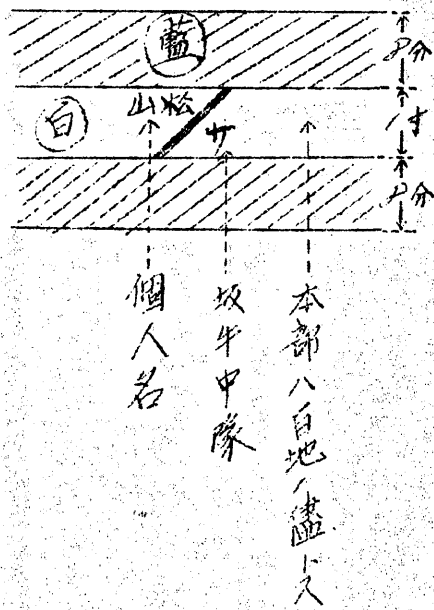 藍
白
松山
サ
分
一寸
分
本部ハ白地ノ儘トス
坂牛中隊
個人名